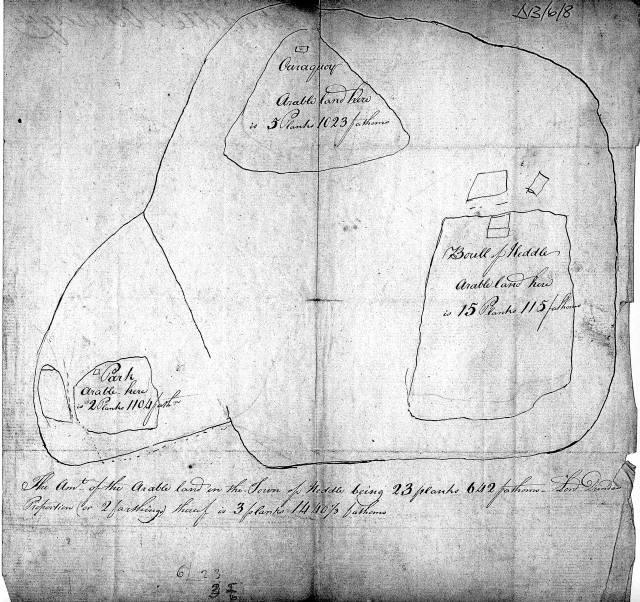 N3/6/8
Curaquoy
Arable land here
is 5 Planks 1023 fathoms
Boull of Heddle
Arable land here
is 15 Planks 115 fathoms
Park
Arable here
is 2 Planks 1104 fath.ms
The Am.t of the Arable land in the Town of Heddle being 23 planks 642 fathoms - Lord Dundas
Proportion (or 2 farthings) thereof is 3 planks 1440⅔ fathoms
6 23